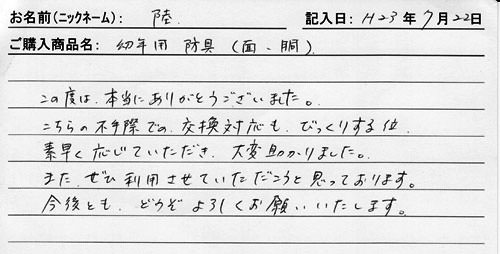 お名前(ニックネーム): 陸 記入日: H23年7月22日
ご購入商品名: 幼年用 防具 (面、胴)
この度は、本当にありがとうございました。
こちらの不手際での、交換対応も、びっくりする位、
素早く応じていただき、大変助かりました。
また、ぜひ利用させていただこうと思っております。
今後とも、どうぞよろしくお願いいたします。